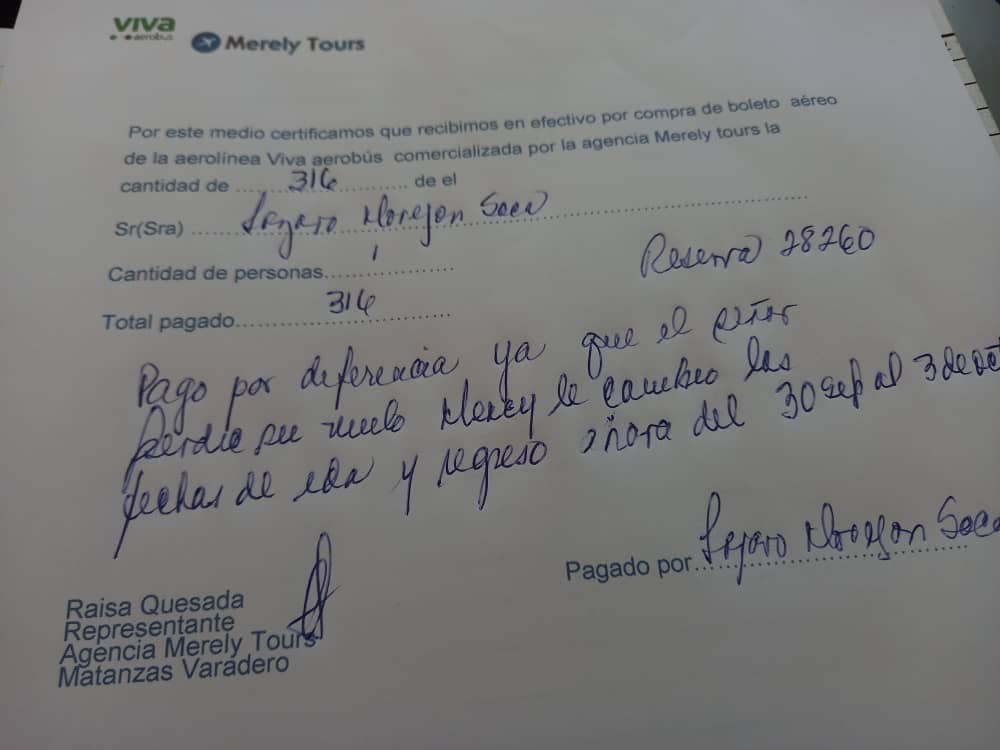 viva
aerobus
Merely Tours
Por este medio certificamos que recibimos en efectivo por compra de boleto aéreo
de la aerolínea Viva aerobús comercializada por la agencia Merely tours la
cantidad de ......316............ de el
Sr(Sra) ...... Lazaro Morejon Soca
Cantidad de personas....1..............
Reserva 28260
Total pagado........316..............
Pago por deferencia ya que el señor
perdio su vuelo Merely le cambio las
fechas de ida y regreso ahora del 30 sep al 3 de oct
Pagado por Lazaro Morejon Soca
Raisa Quesada
Representante
Agencia Merely Tours
Matanzas Varadero